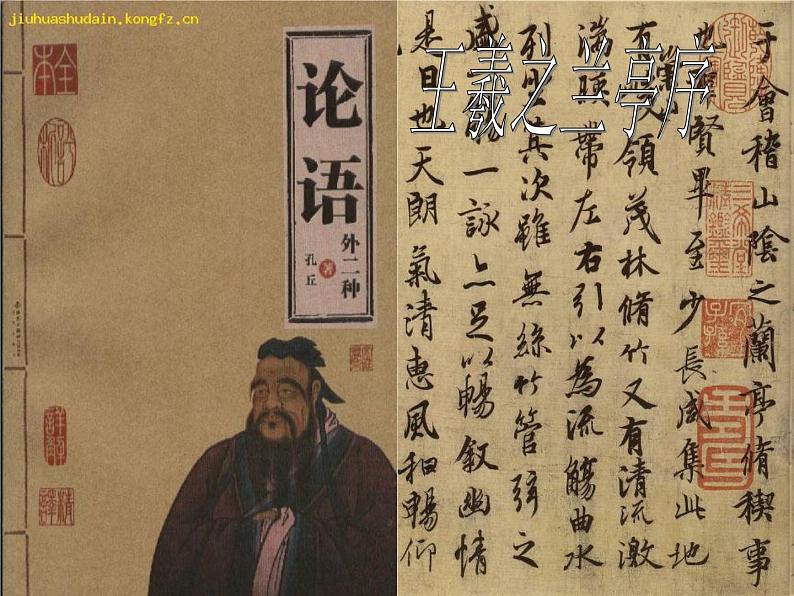 jiuhuashudain.kongfz.cn
全本
论语
外二种
孔丘
著
詳解
精譯
王羲之兰亭序
于會稽山陰之蘭亭脩稧事
也羣賢畢至少長咸集此地
有崇山峻領茂林脩竹又有清流激
湍暎帶左右引以為流觴曲水
列坐其次雖無絲竹管弦之
盛一觴一詠亦足以暢敘幽情
是日也天朗氣清惠風和暢仰